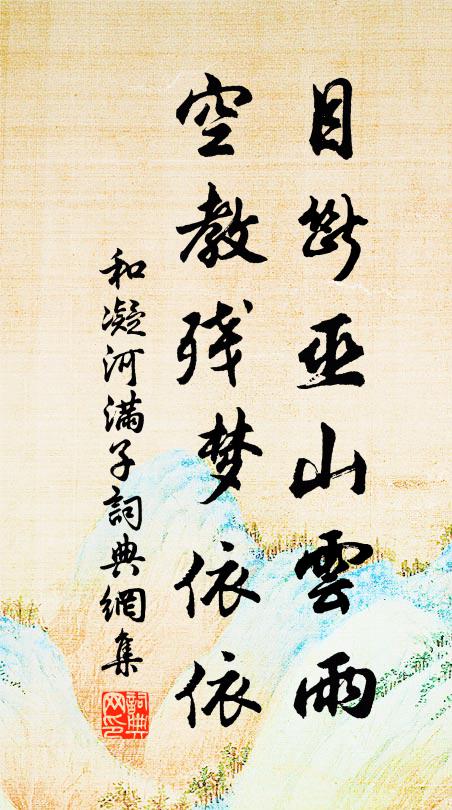 目断巫山雲雨
空教残梦依依
和凝河满子詞典網集
詞典
网印